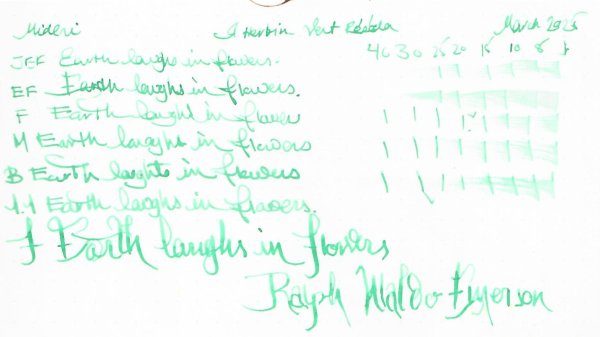 Midori J Herbin Vert March 2025
40 30 25 20 15 10 5 1
JEF Earth laughs in flowers.
EF Earth laughs in flowers.
F Earth laughs in flower
M Earth laughs in flowers
B Earth laughts in flowers
1.1 Earth laughs in flowers.
F Earth laughs in flowers
Ralph Waldo Emerson